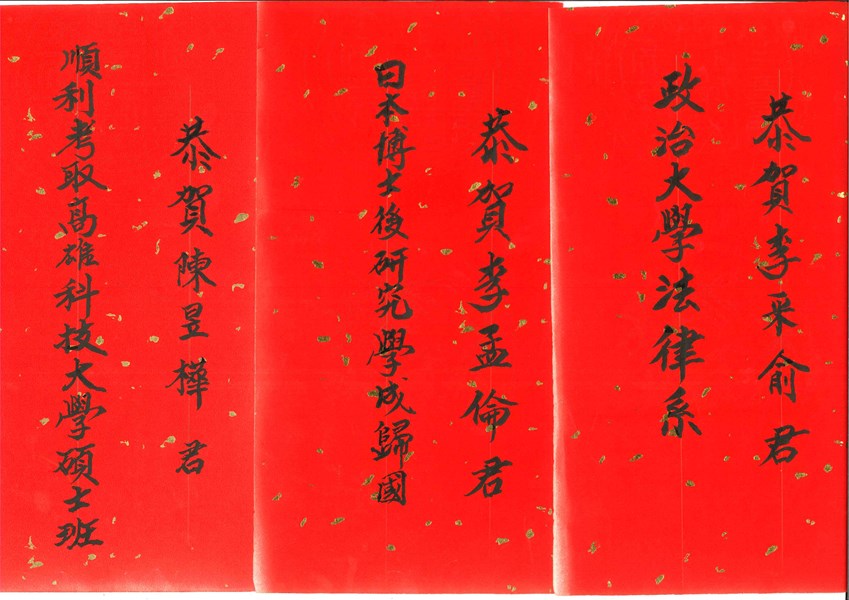 恭賀李采俞君
政治大學法律系
恭賀李孟倫君
日本博士後研究學成歸國
恭賀陳昱樺君
順利考取高雄科技大學碩士班